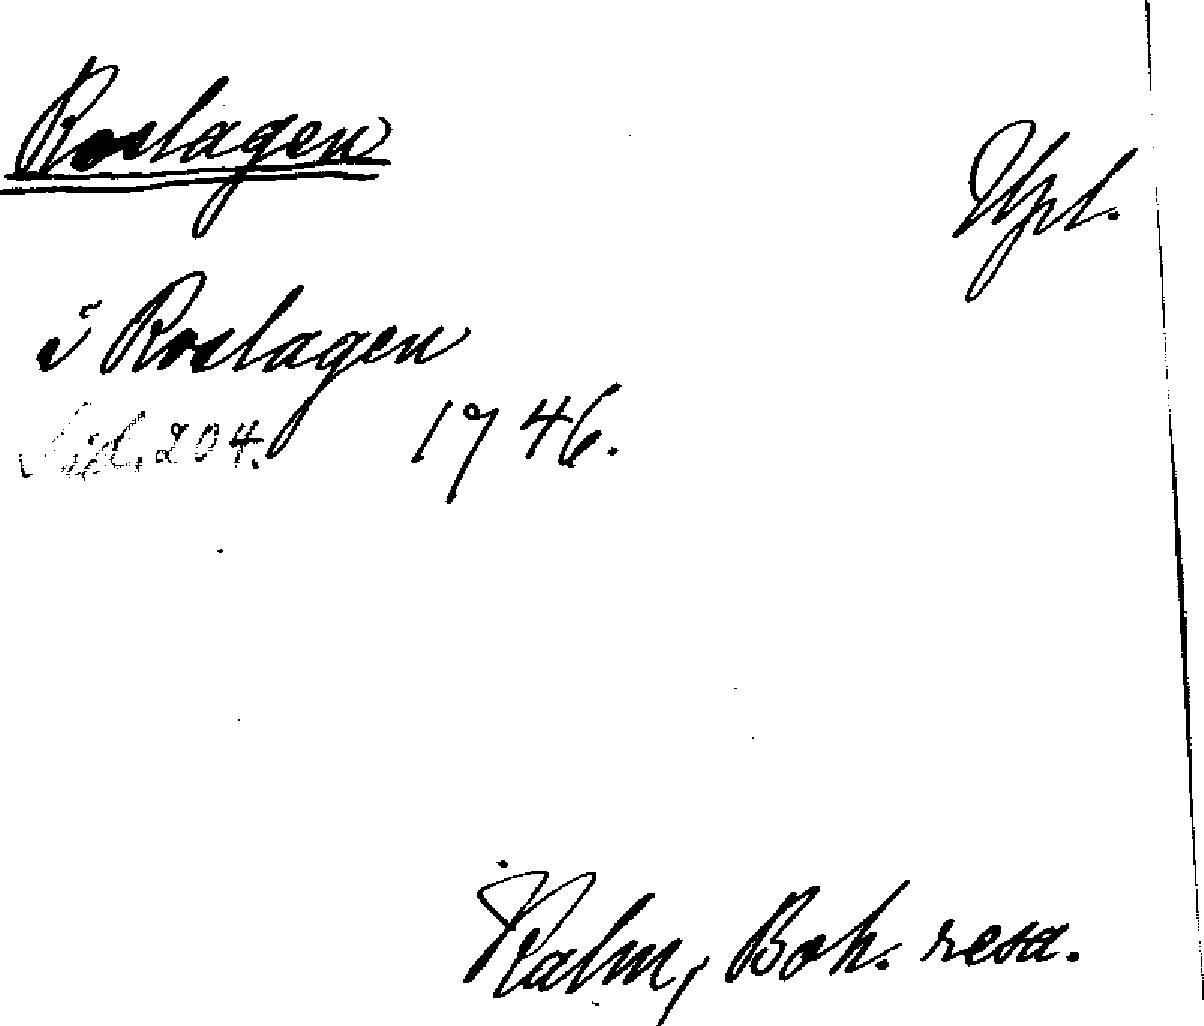 Roslagen
Upl.
i Roslagen
204. 1746.
Kalm, Boh. resa.